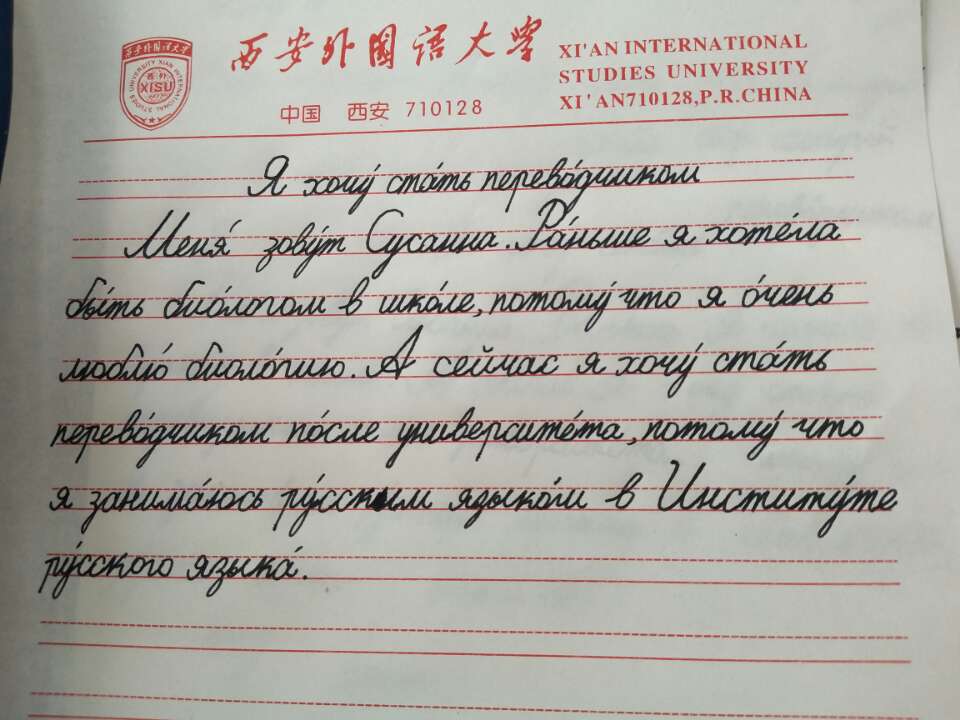 西安外国语大学
XI'AN INTERNATIONAL
STUDIES UNIVERSITY
XI'AN710128,P.R.CHINA
中国 西安 710128
西安外国语大学
UNIVERSITY XIAN INTERNATIONAL STUDIES
西外
XISU
Я хочу́ ста́ть перево́дчиком
Меня́ зову́т Сусанна. Ра́ньше я хоте́ла
бы́ть био́логом в шко́ле, потому́ что я о́чень
люблю́ биоло́гию. А сейча́с я хочу́ ста́ть
перево́дчиком по́сле университе́та, потому́ что
я занима́юсь ру́сским языко́м в Институ́те
ру́сского языка́.